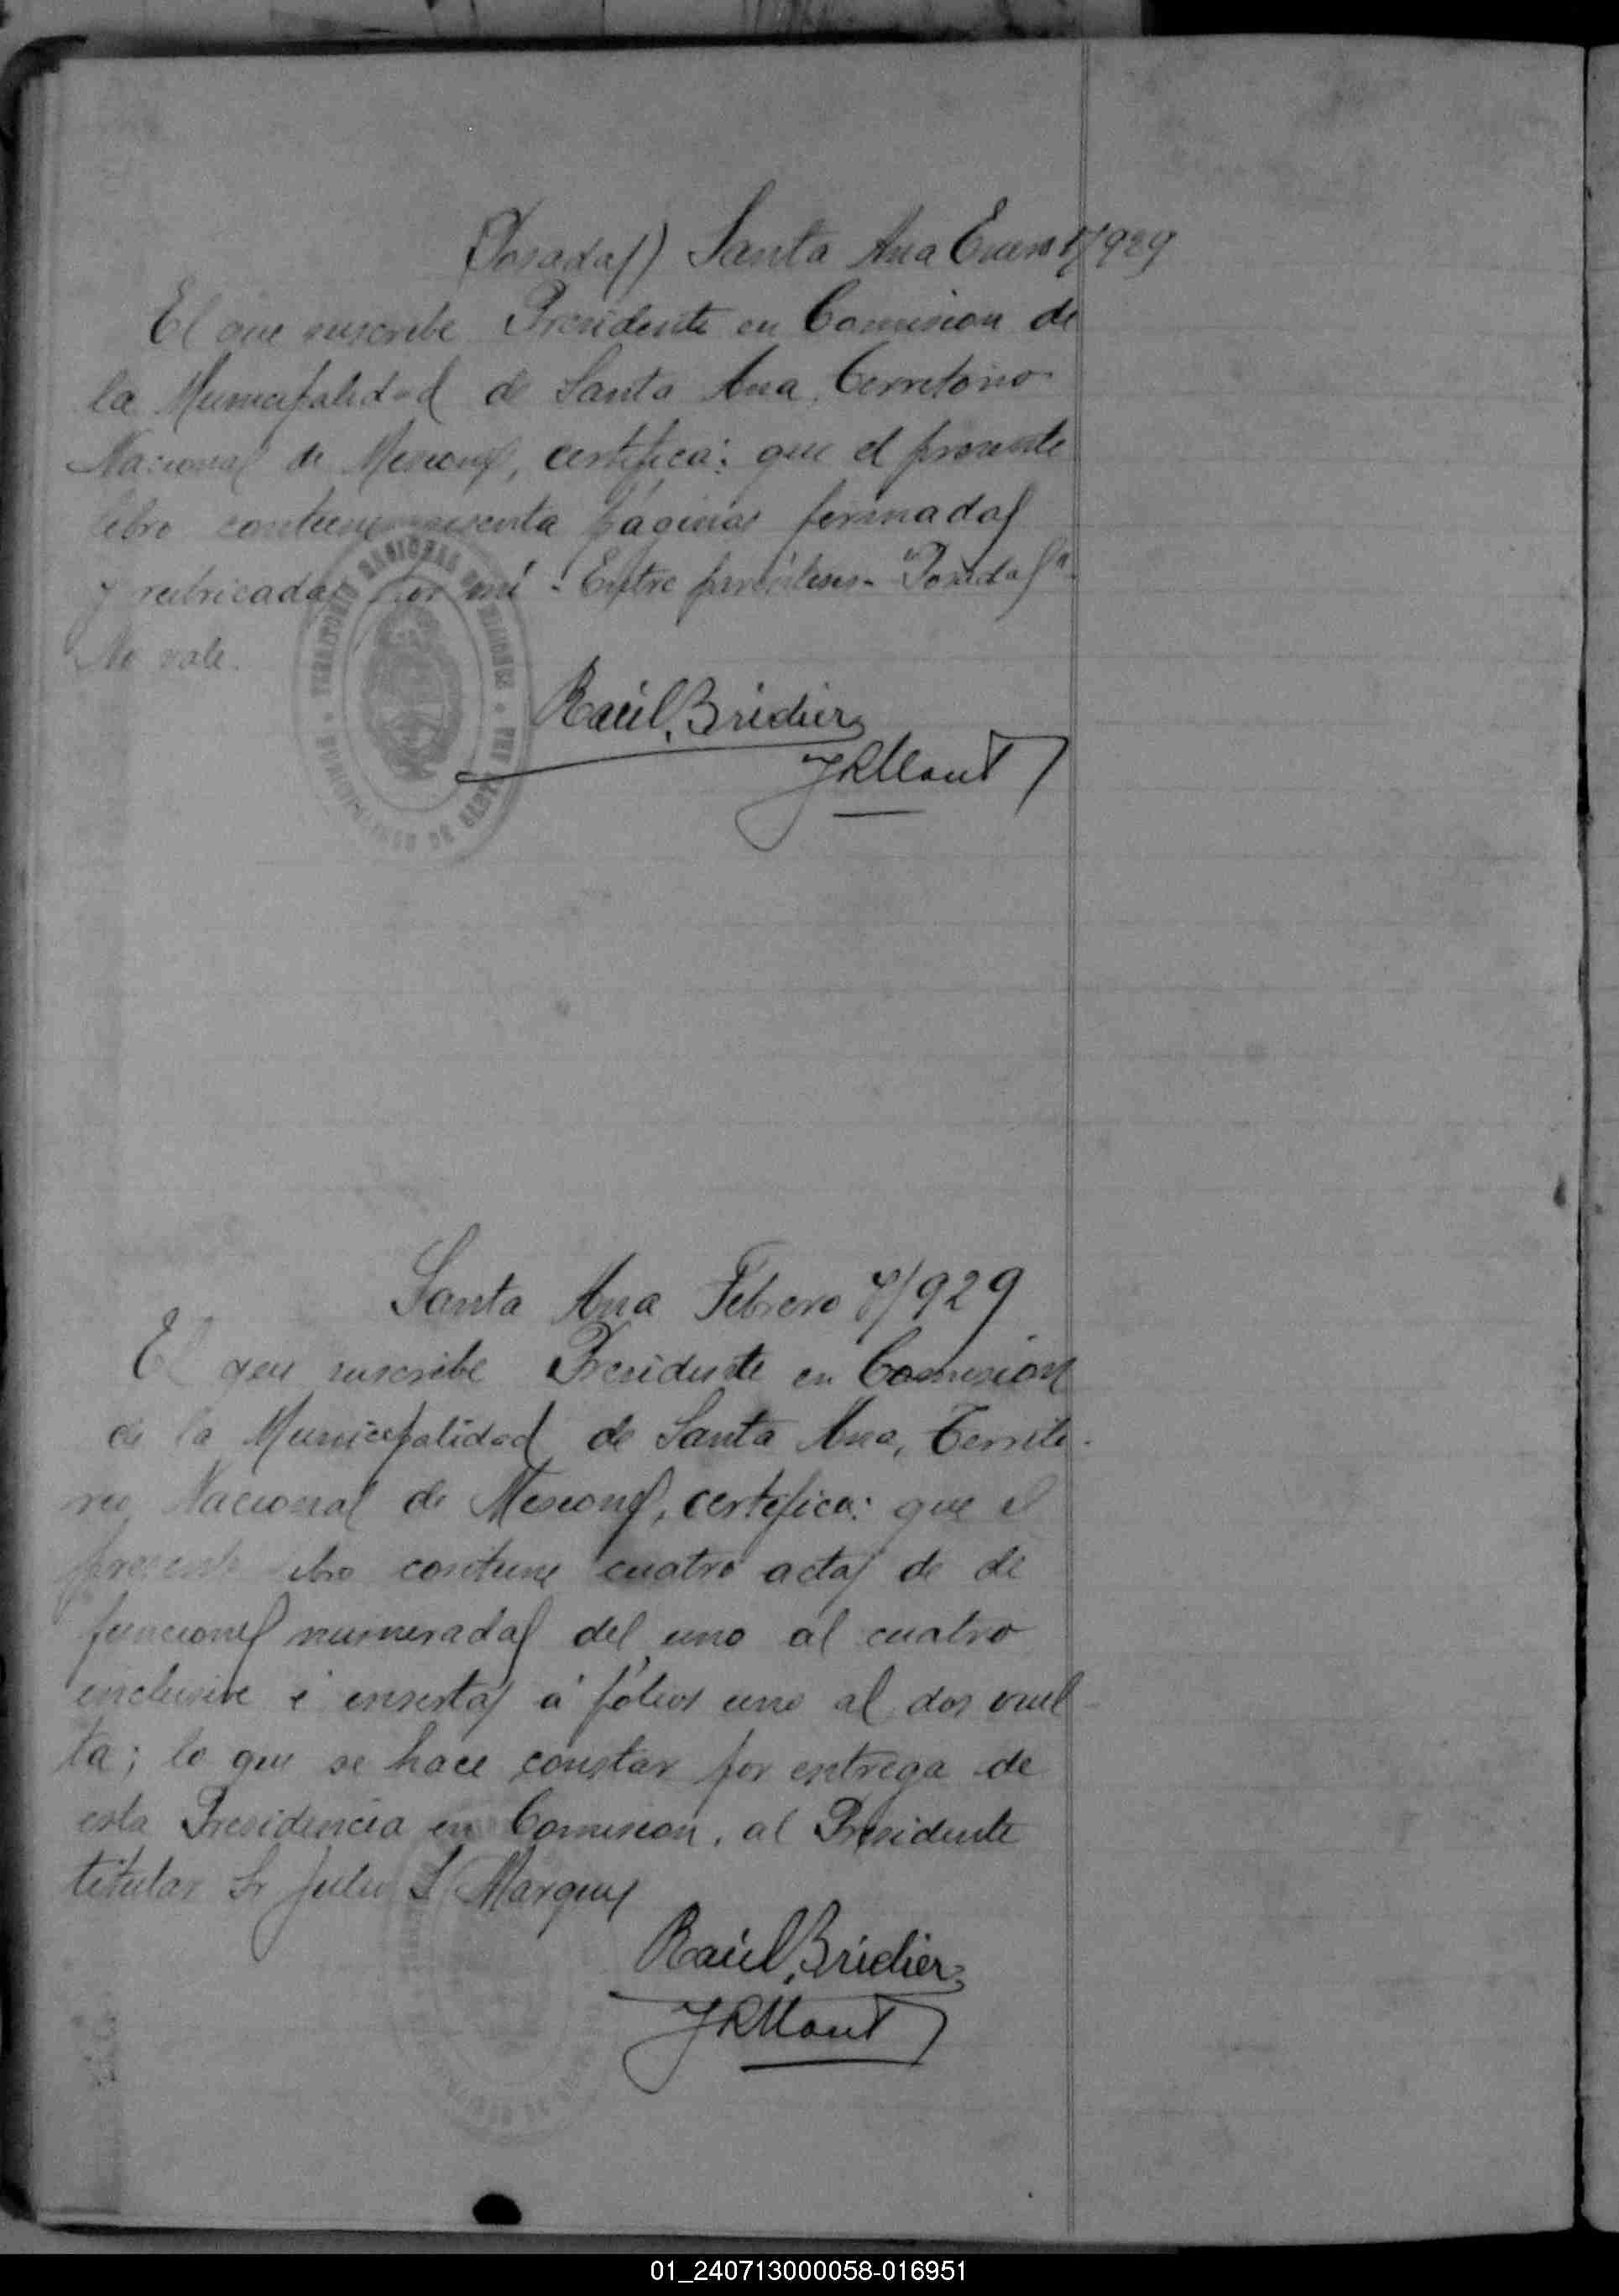 (Posadas) Santa Ana Enero 1/929
El que suscribe Presidente en Comision de
la Municipalidad de Santa Ana, Territorio
Nacional de Misiones, certifica: que el presente
libro contiene sesenta páginas firmadas
y rubricadas por mí - Entre paréntesis - "Posadas" -
No vale.
TERRITORIO NACIONAL DE MISIONES
MUNICIPALIDAD DE SANTA ANA
Raúl Bridier
Santa Ana Febrero 7/929
El que suscribe Presidente en Comisión
de la Municipalidad de Santa Ana, Territo-
rio Nacional de Misiones, certifica: que el
presente libro contiene cuatro actas de de
funciones numeradas del uno al cuatro
inclusive é insertas á fólios uno al dos vuel-
ta; lo que se hace constar por entrega de
esta Presidencia en Comision, al Presidente
titular Sr Julio S Marques
Raúl Bridier
01_240713000058-016951